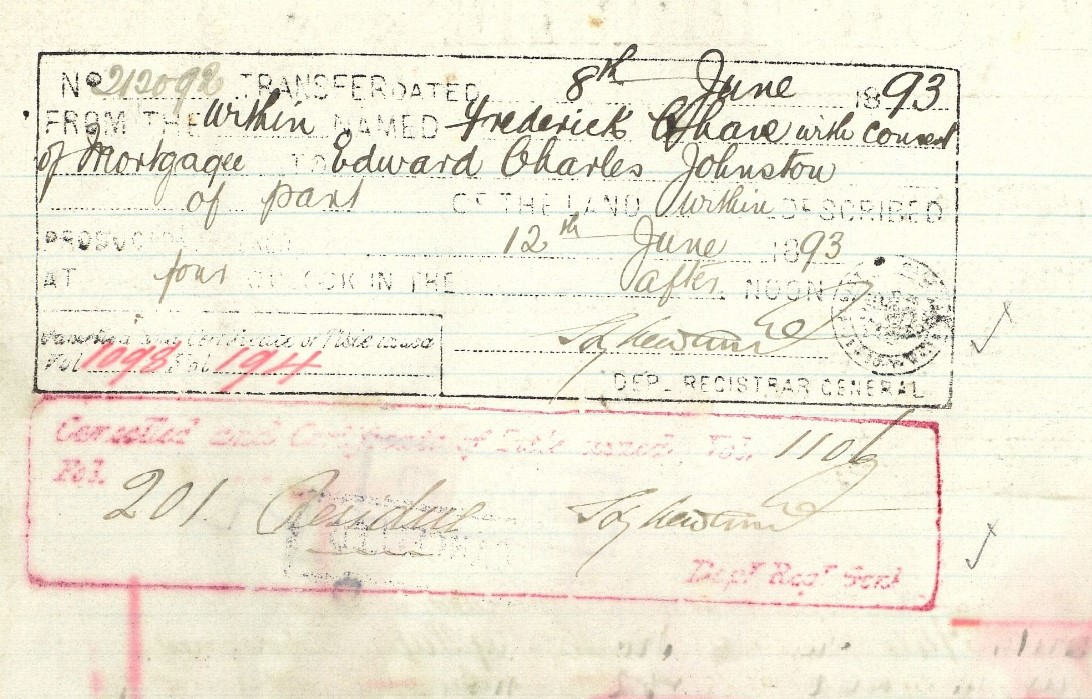 No 212092 TRANSFER DATED 8th June 1893
FROM THE within NAMED Frederick Chave with consent
of Mortgagee TO Edward Charles Johnston
of part OF THE LAND within DESCRIBED
PRODUCED AND 12th June 1893
AT four O'CLOCK IN THE after NOON
Cancelled and Certificate of Title issued
Vol 1098 Fol 194
DEP. REGISTRAR GENERAL
Cancelled and Certificate of Title issued. Vol. 1106
Fol. 201 Residue
Dept Regr Genl